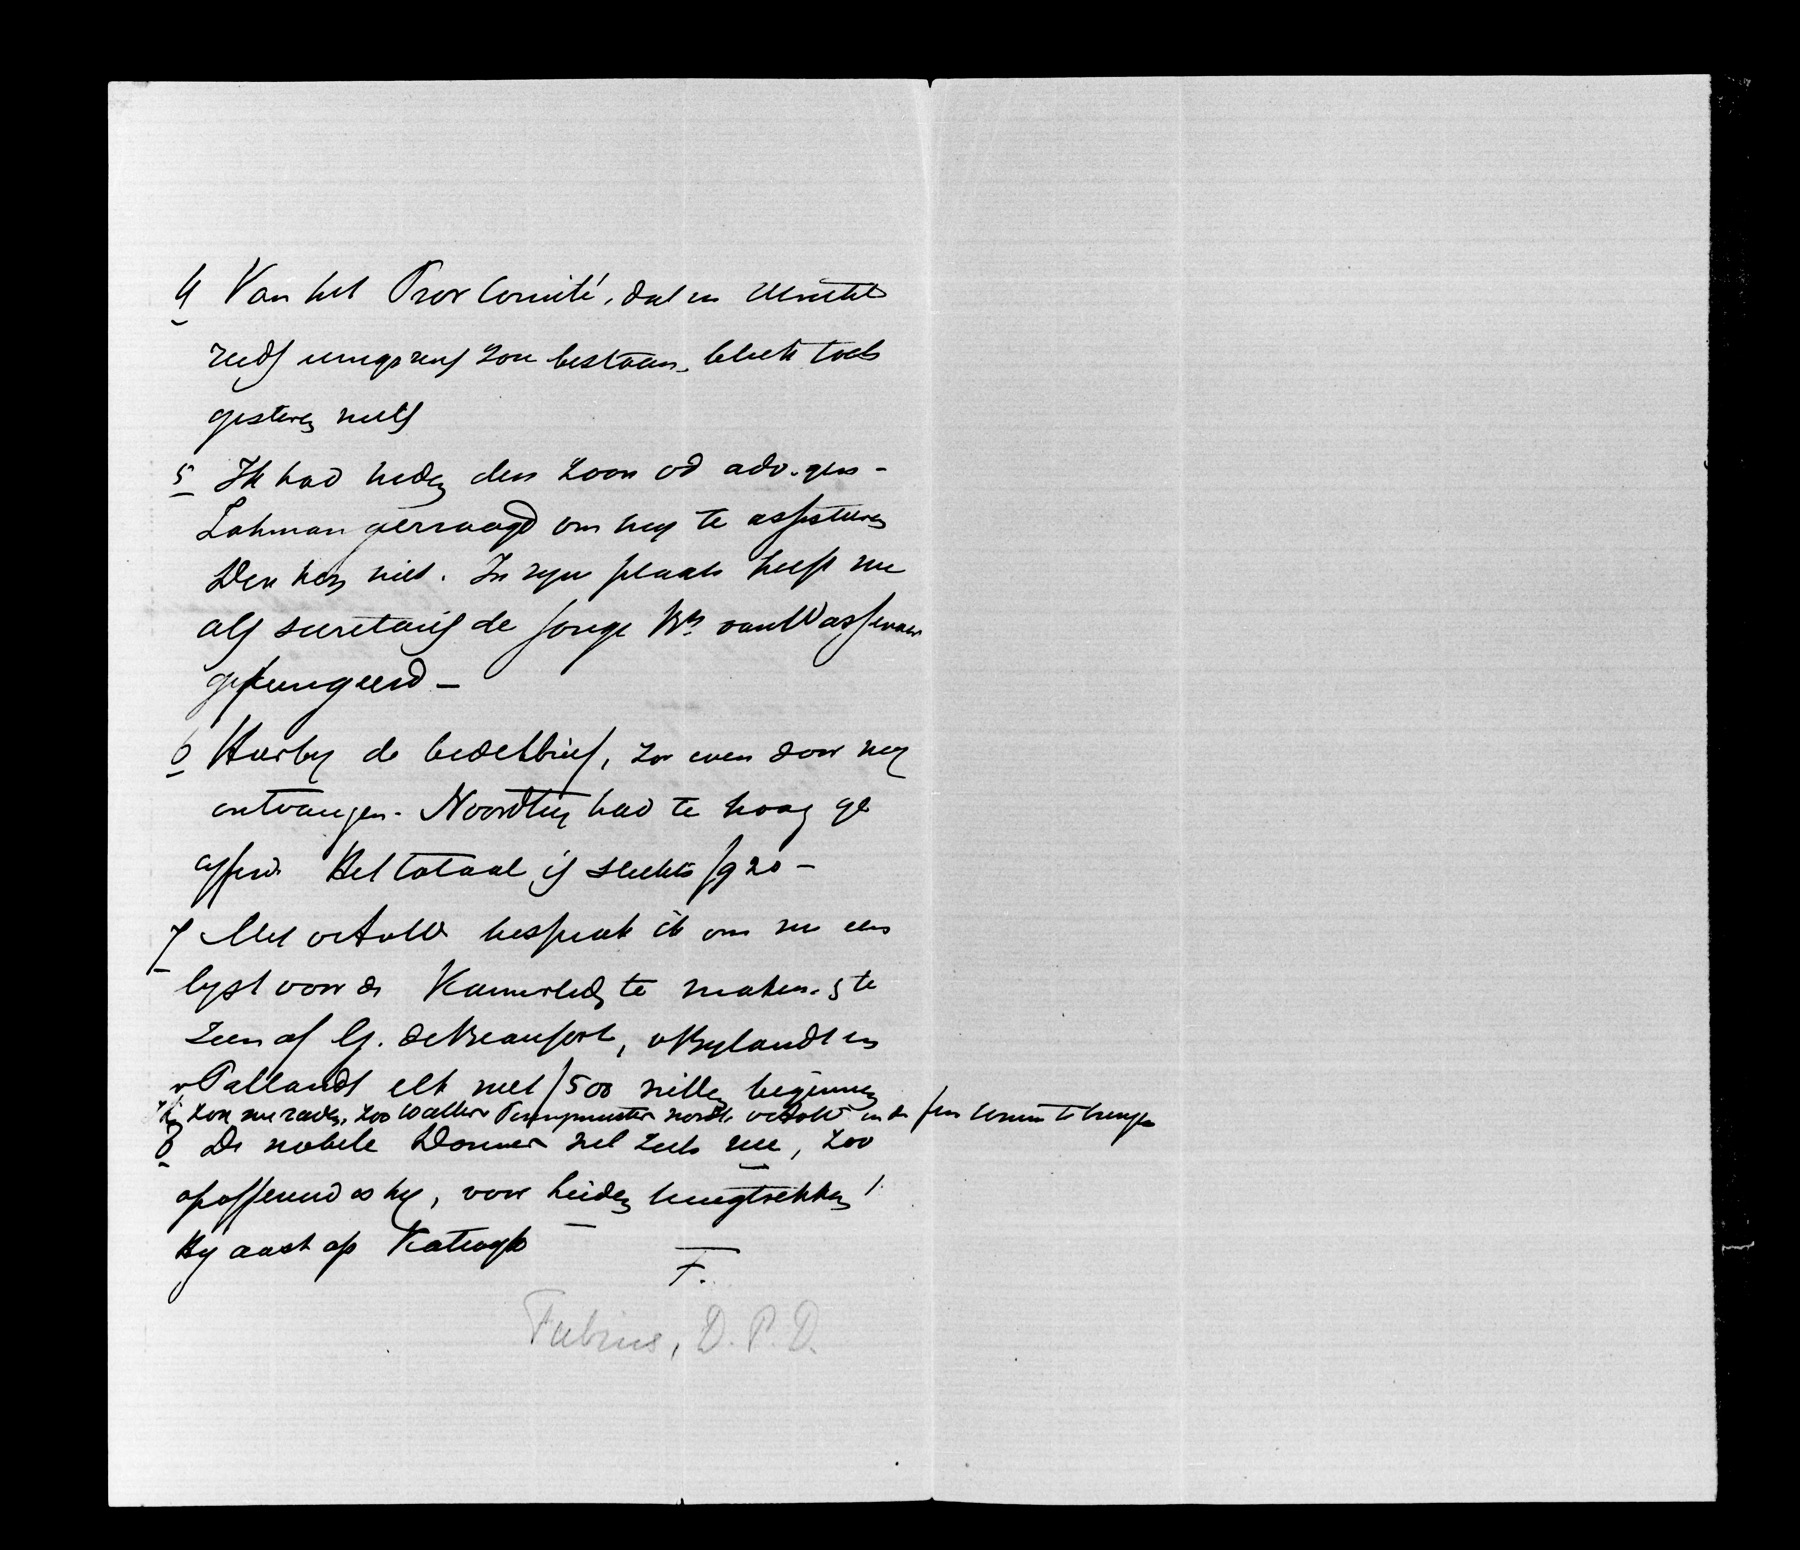 4 Van het Prov Comité, dat in Utrecht
reeds zou bestaan, bleek toch
gisteren niets
5 Ik had heden den zoon vd adv. gen -
Lohman gevraagd om my te assisteren
Den kon niet. In zyn plaats heeft nu
als secretaris de jonge Bn van Wassenaer
gefungeerd —
6 Hierby de bedelbrief, zoo even door my
ontvangen. Noordtzy had te hoog ge
cyferd. Het totaal is slechts f 920 —
7 Met besprak ik om nu een
lyst voor de Kamerleden te maken. &
zien of G. de Beaufort, v Bylandt en
v Pallandt elk met f 500 willen beginnen
Ik zou nu raden, zoo Waller Penningmeester wordt, in de te brengen
8 De nobele Donner zal zich nu, zoo
opofferend als hy, voor Leiden terugtrekken!
Hy aast op Katwyk
F.
Fabius, D. P. D.